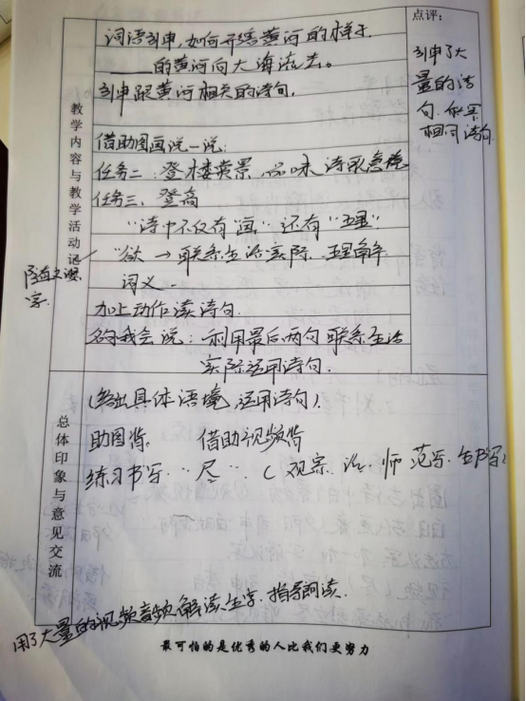 点评：
词语引申，如何形容黄河的样子.
____的黄河向大海流去。
引申跟黄河相关的诗句.
引申了大
量的诗
句.
相同诗句
教学内容与教学活动记
借助图画说一说：
任务二：登楼赏景，品味诗歌意境
任务三、登高
“诗中不仅有“画”还有“理”
“欲”→联系生活实际 理解
词义.
随文识
字.
加上动作读诗句.
我会说：利用最后两句联系生活
实际运用诗句.
(给出具体语境，运用诗句).
助图背. 借助视频背
练习书写：“尽”. (观察. 师范写. 生书写)
总体印象与意见交流
用了大量的视频音频，解读生字，指导朗读.
最可怕的是优秀的人比我们更努力